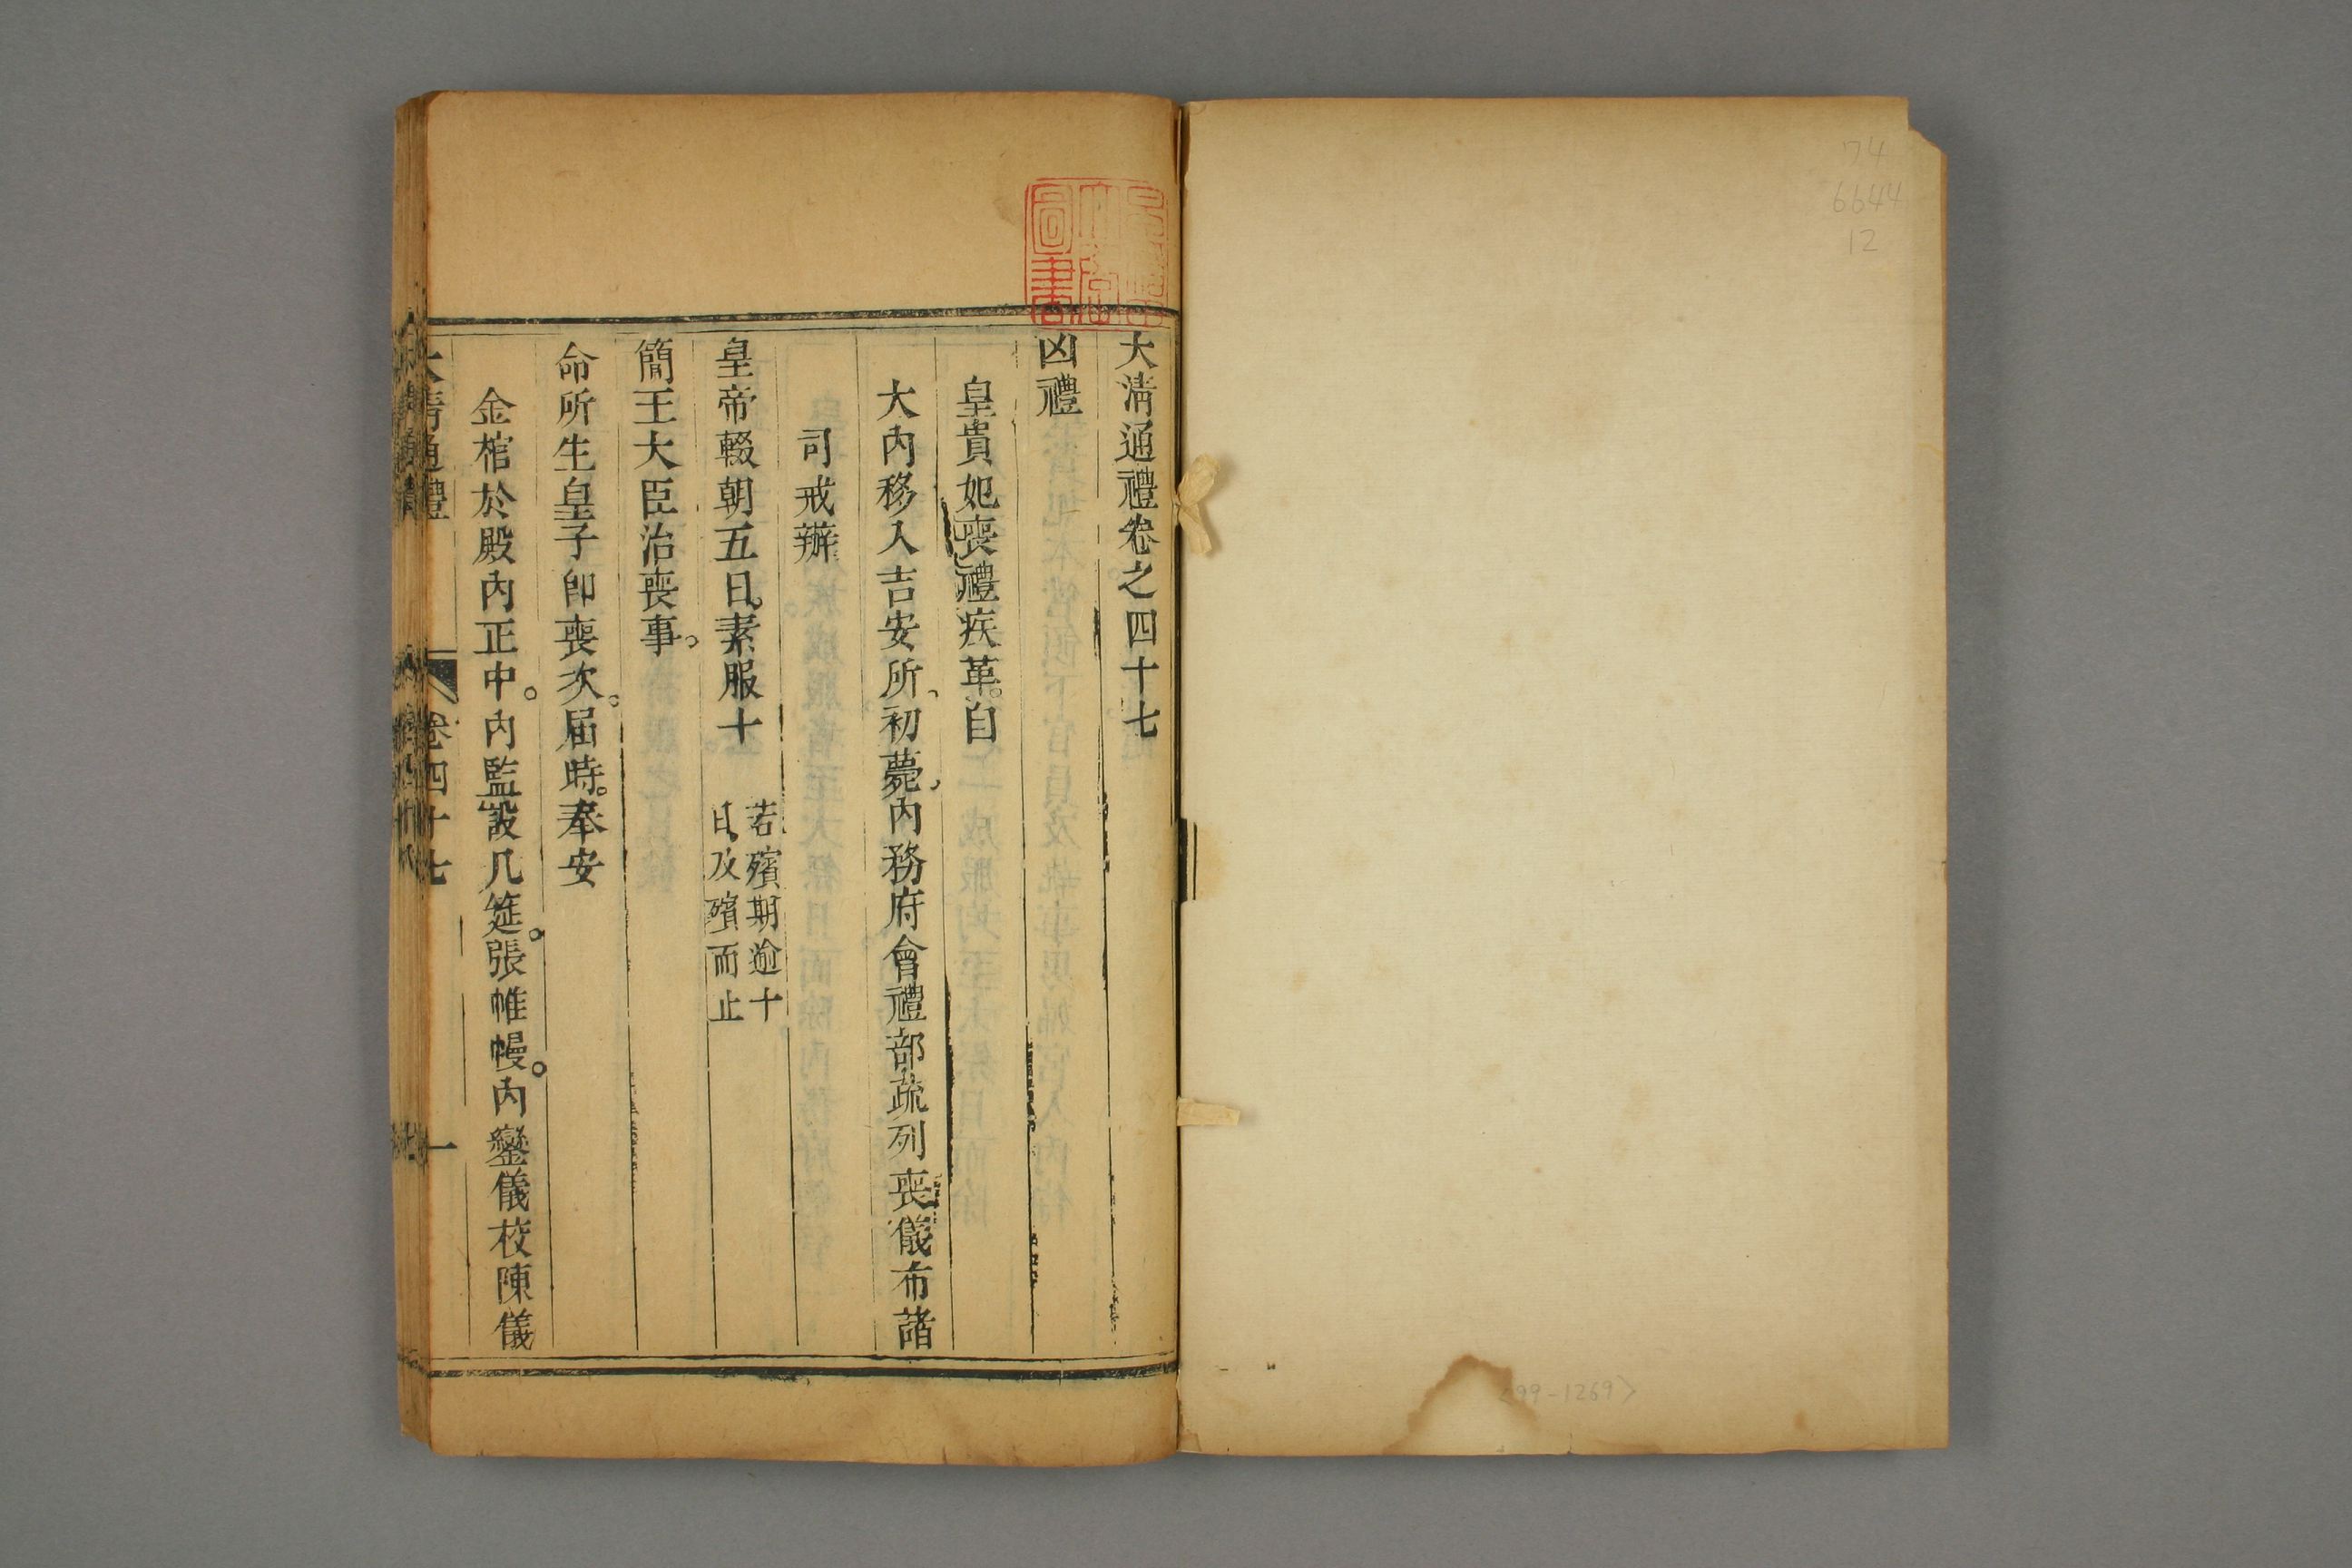 74
6644
12
大淸通禮卷之四十七
凶禮
皇貴妃喪禮疾革。自
大內移入吉安所、初薨、內務府會禮部疏列喪儀布諸
司戒辦
皇帝輟朝五日。素服十
若殯期逾十
日、及殯而止
簡王大臣治喪事。
命所生皇子卽喪次。屆時。奉安
金棺於殿內正中。內監設几筵。張帷幔。內鑾儀校陳儀
大淸通禮
卷四十七
一
圖書
<99-1269>